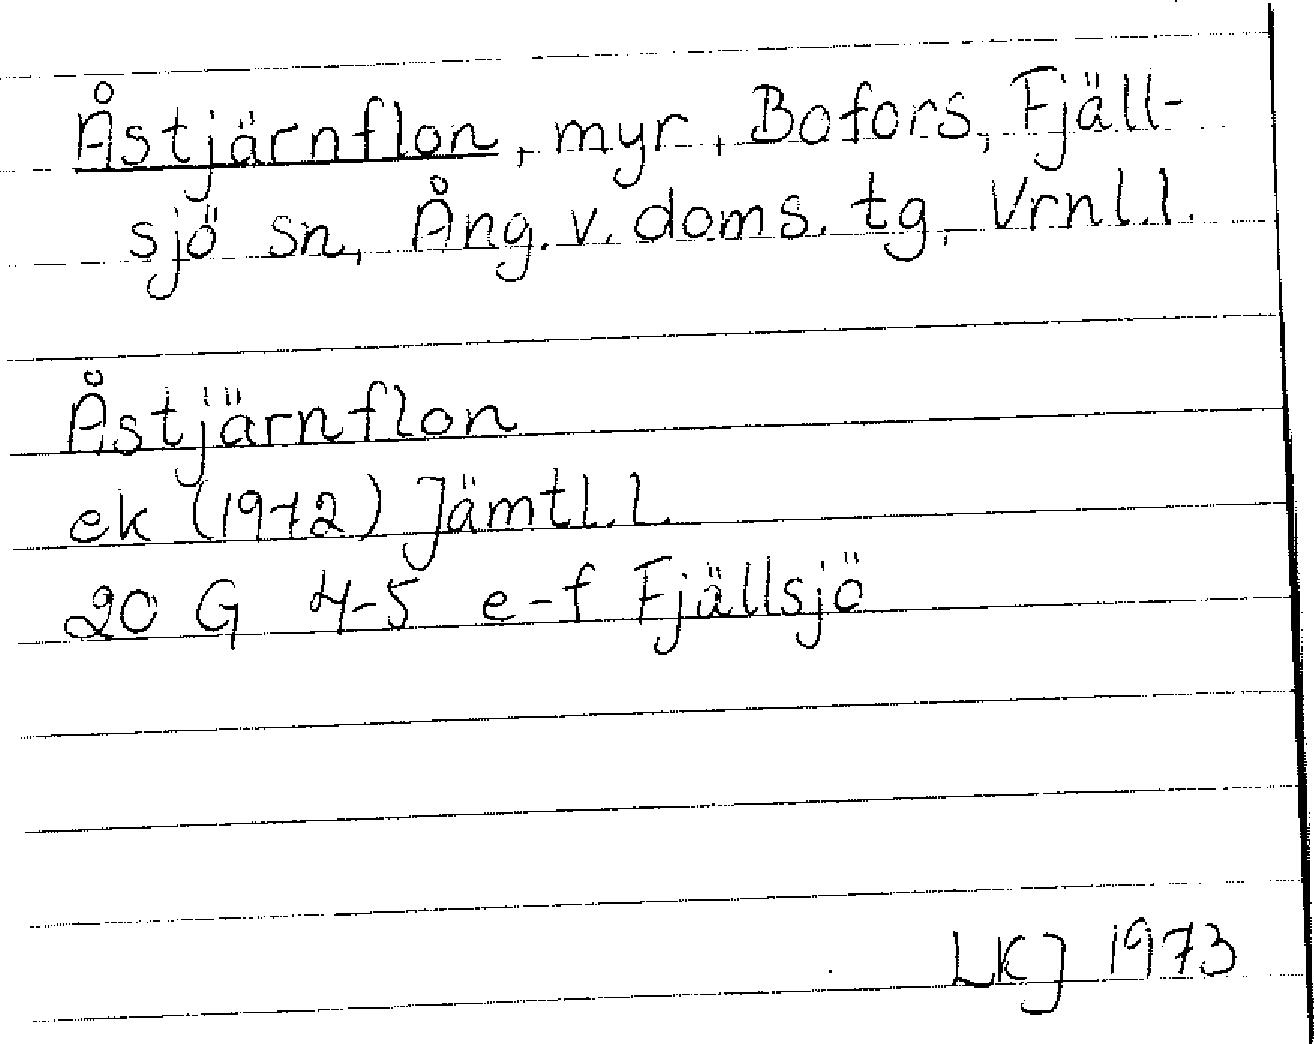 Åstjärnflon, myr, Bofors, Fjäll-
sjö sn, Ång. v. doms. tg, Vrnl.l.
Åstjärnflon
ek (1972) Jämtl. L
20 G 4-5 e-f Fjällsjö
LKJ 1973